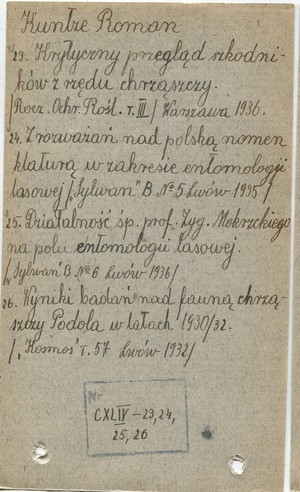 Kuntze Roman
23. Krytyczny przegląd szkodni-
ków z rzędu chrząszczy.
/Rocz. Ochr. Rośl. T. III/ Warszawa 1936.
24. Z rozważań nad polską nomen
klaturą w zakresie entomologji
lasowej /„Sylwan" B. № 5 Lwów 1935/
25. Działalność śp. prof. Zyg. Mokrzeckiego
na polu entomologii lasowej.
/„Sylwan" B. № 6 Lwów 1936/
26. Wyniki badań nad fauną chrzą-
szczy Podola w latach 1930/32.
/„Kosmos" T. 57 Lwów 1932/
Nr
CXLIV – 23, 24,
25, 26